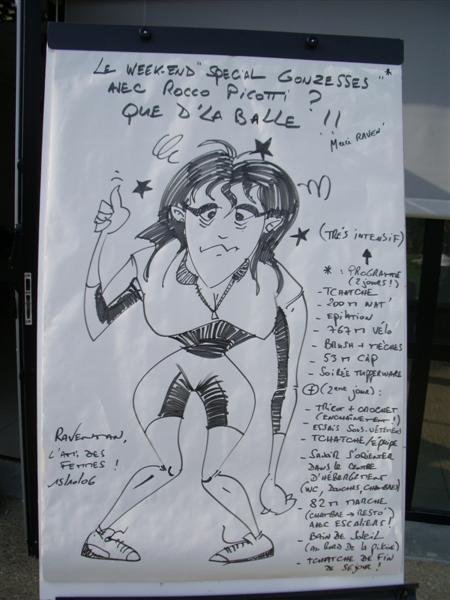 LE WEEK-END "SPECIAL GONZESSES" *
AVEC ROCCO PICOTTI ?
QUE D'LA BALLE !!
Merci RAVEN' !
(TRÈS INTENSIF)
* : PROGRAMME
(2 JOURS !)
- TCHATCHE
- 200 M NAT'
- EPILATION
- 767 M VÉLO
- BRUSH + MÈCHES
- 53 M CÀP
- SOIRÉE TUPPERWARE
+ (2ème JOUR) :
- TRICOT + CROCHET
(ENCHAÎNEMENT !)
- ESSAIS SOUS-VÊTEMENTS
- TCHATCHE/ÉQUIPE
- SAVOIR S'ORIENTER
DANS LE CENTRE
D'HÉBERGEMENT
(WC, DOUCHES, CHAMBRES)
- 82 M MARCHE
(CHAMBRE → RESTO)
AVEC ESCALIERS !
- BAIN DE SOLEIL
(AU BORD DE LA PISCINE)
- TCHATCHE DE FIN
DE SÉJOUR !
RAVENMAN,
L'AMI DES
FEMMES !
15/10/06